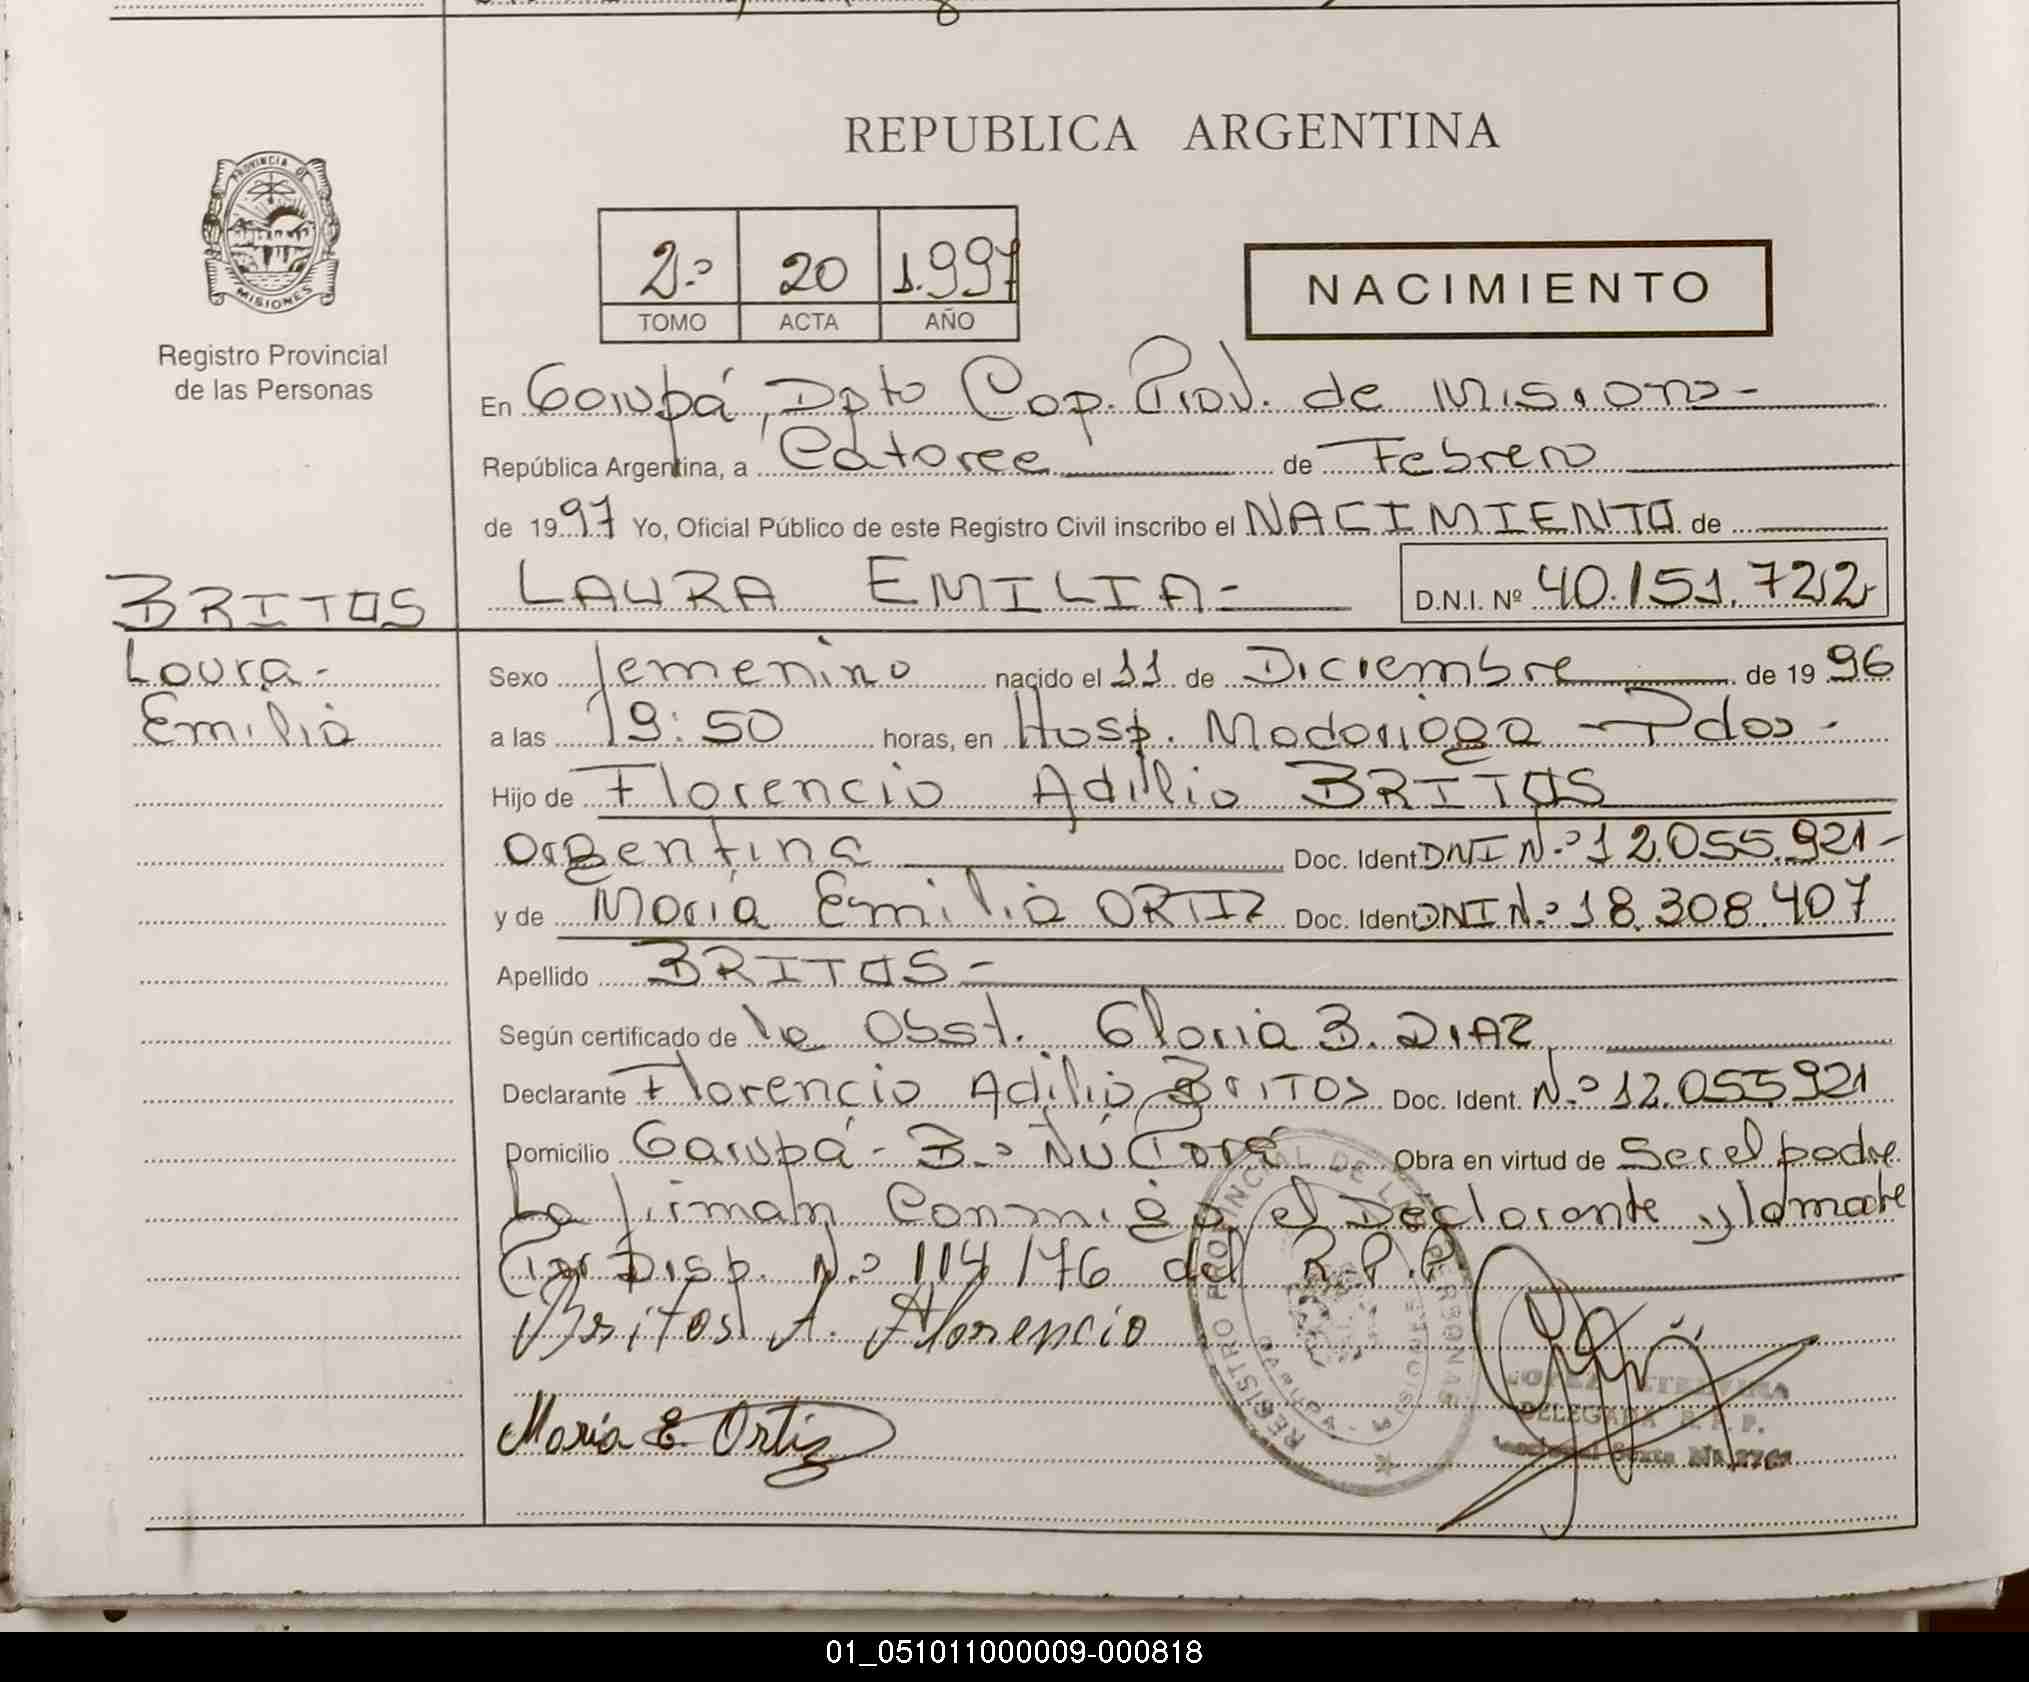 REPUBLICA ARGENTINA
PROVINCIA DE
MISIONES
Registro Provincial
de las Personas
2º 20 1.997
TOMO ACTA AÑO
NACIMIENTO
En Garupá, Dpto Cap. Prov. de Misiones -
República Argentina, a Catorce de Febrero
de 1997 Yo, Oficial Público de este Registro Civil inscribo el NACIMIENTO de
BRITOS
LAURA EMILIA - D.N.I. Nº 40.151.722
Laura -
Emilia
Sexo femenino nacido el 11 de Diciembre de 1996
a las 19:50 horas, en Hosp. Madariaga - Pdas -
Hijo de Florencio Adilio BRITOS
argentina Doc. Ident DNI Nº 12.055.921 -
y de María Emilia ORTIZ Doc. Ident DNI Nº 18.308.407
Apellido BRITOS -
Según certificado de la Obst. Gloria B. DIAZ
Declarante Florencio Adilio BRITOS Doc. Ident. Nº 12.055.921
Domicilio Garupá - Bº Ñú Porá Obra en virtud de Ser el padre
firman Conmigo el Declarante y la madre
Por Disp. Nº 114/76 del R.P.P.
Britos A. Florencio
María E. Ortiz
REGISTRO PROVINCIAL DE LAS PERSONAS
LOPEZ
DELEGADA R.P.P.
01_051011000009-000818